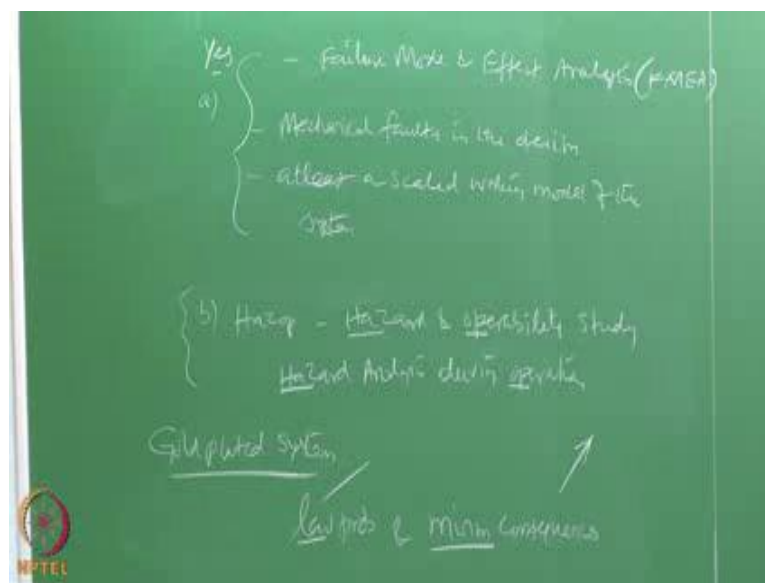 Yes
- Failure Mode & Effect Analysis (FMEA)
a)
- Mechanical faults in the design
- atleast a scaled working model of the
system
b) Hazop - Hazard & operability Study
Hazard Analysis during operation
Gold plated System
low prob & minm consequences
NPTEL